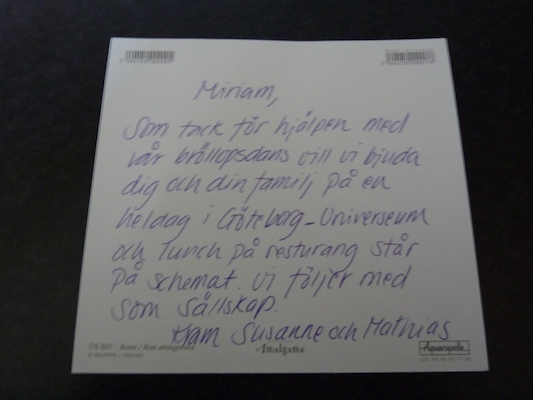 Miriam,
Som tack för hjälpen med
vår bröllopsdans vill vi bjuda
dig och din familj på en
heldag i Göteborg-Universeum
och lunch på resturang står
på schemat. Vi följer med
som sällskap.
Kram Susanne och Mathias
CS 601
Aquarupella